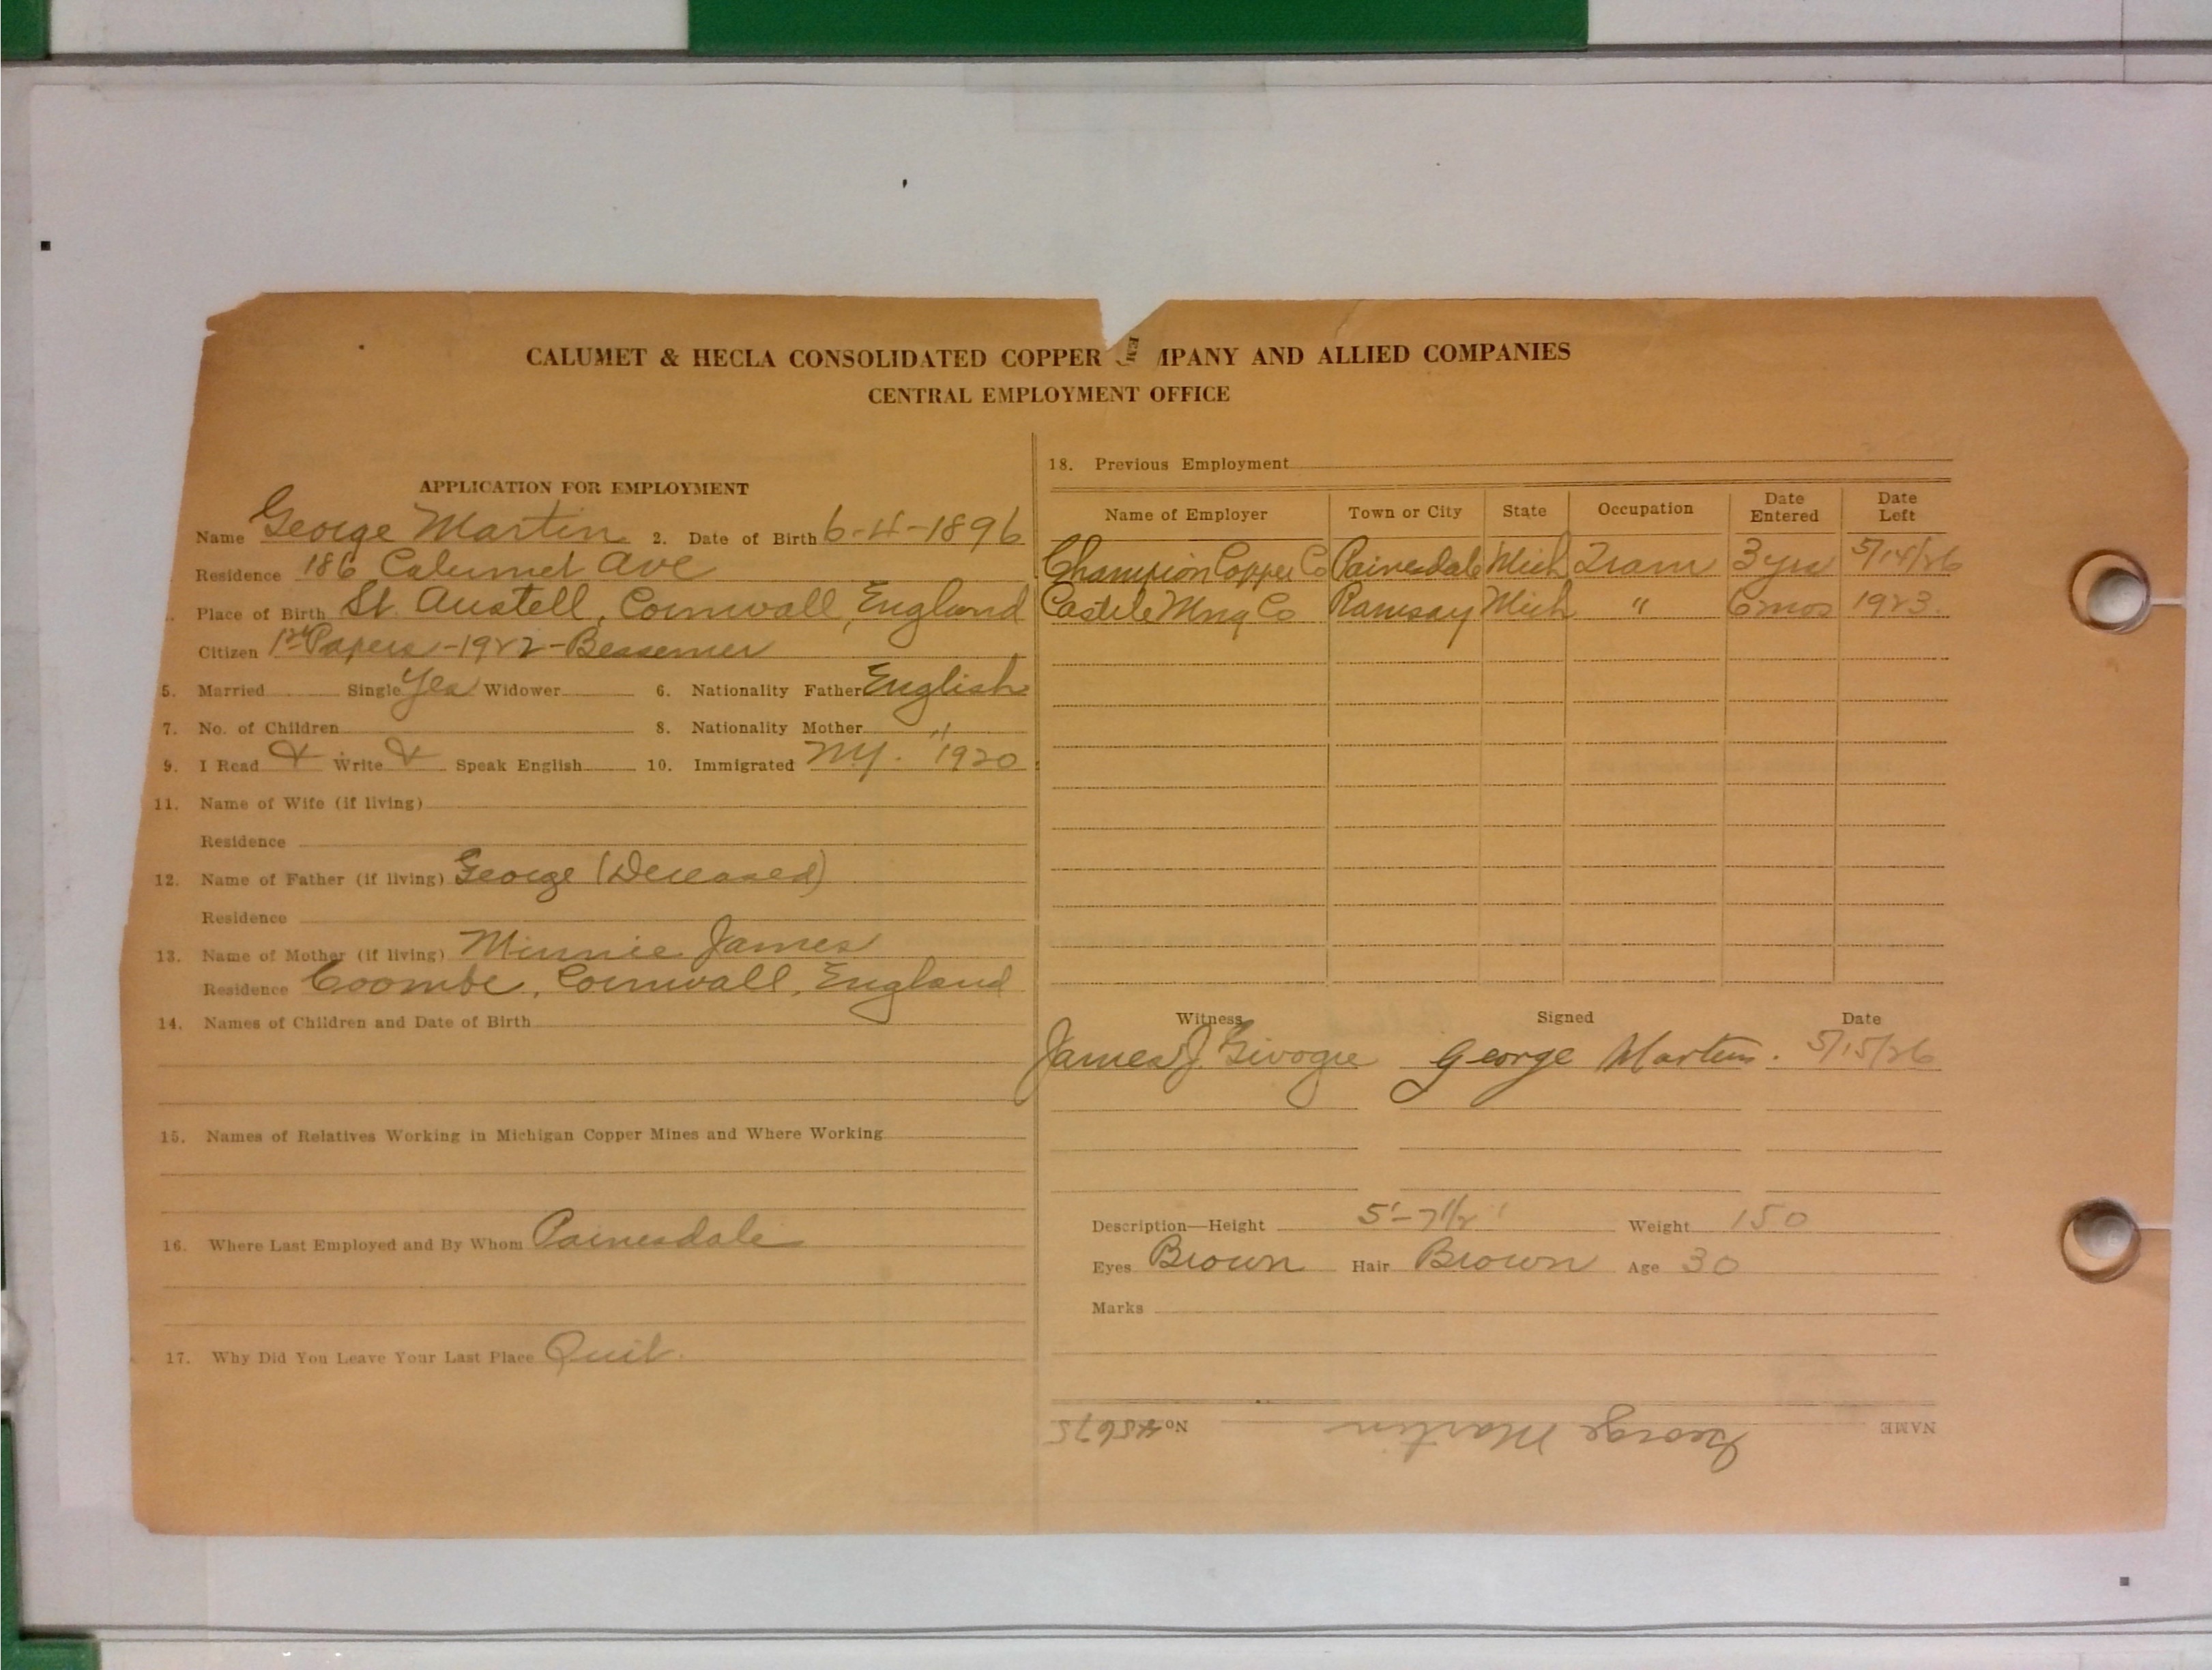 CALUMET & HECLA CONSOLIDATED COPPER MPANY AND ALLIED COMPANIES
CENTRAL EMPLOYMENT OFFICE
APPLICATION FOR EMPLOYMENT
Name George Martin 2. Date of Birth 6-4-1896
Residence 186 Calumet Ave
Place of Birth St. Austell, Cornwall, England
Citizen 1st Papers-1922-Bessemer
5. Married Single Yes Widower 6. Nationality Father English
7. No. of Children 8. Nationality Mother "
9. I Read Write Speak English 10. Immigrated N.Y. 1920
11. Name of Wife (if living)
Residence
12. Name of Father (if living) George (Deceased)
Residence
13. Name of Mother (if living) Minnie James
Residence Coombe, Cornwall, England
14. Names of Children and Date of Birth
15. Names of Relatives Working in Michigan Copper Mines and Where Working
16. Where Last Employed and By Whom Painesdale
17. Why Did You Leave Your Last Place Quit.
18. Previous Employment
Name of Employer Town or City State Occupation Date Entered Date Left
Champion Copper Co Painesdale Mich Tram 3 yrs 5/14/26
Castile Mng Co Ramsay Mich " 6 mos 1923.
Witness Signed Date
James J. George Martin. 5/15/26
Description—Height 5'-7 1/2" Weight 150
Eyes Brown Hair Brown Age 30
Marks
NAME George Martin No. 45675